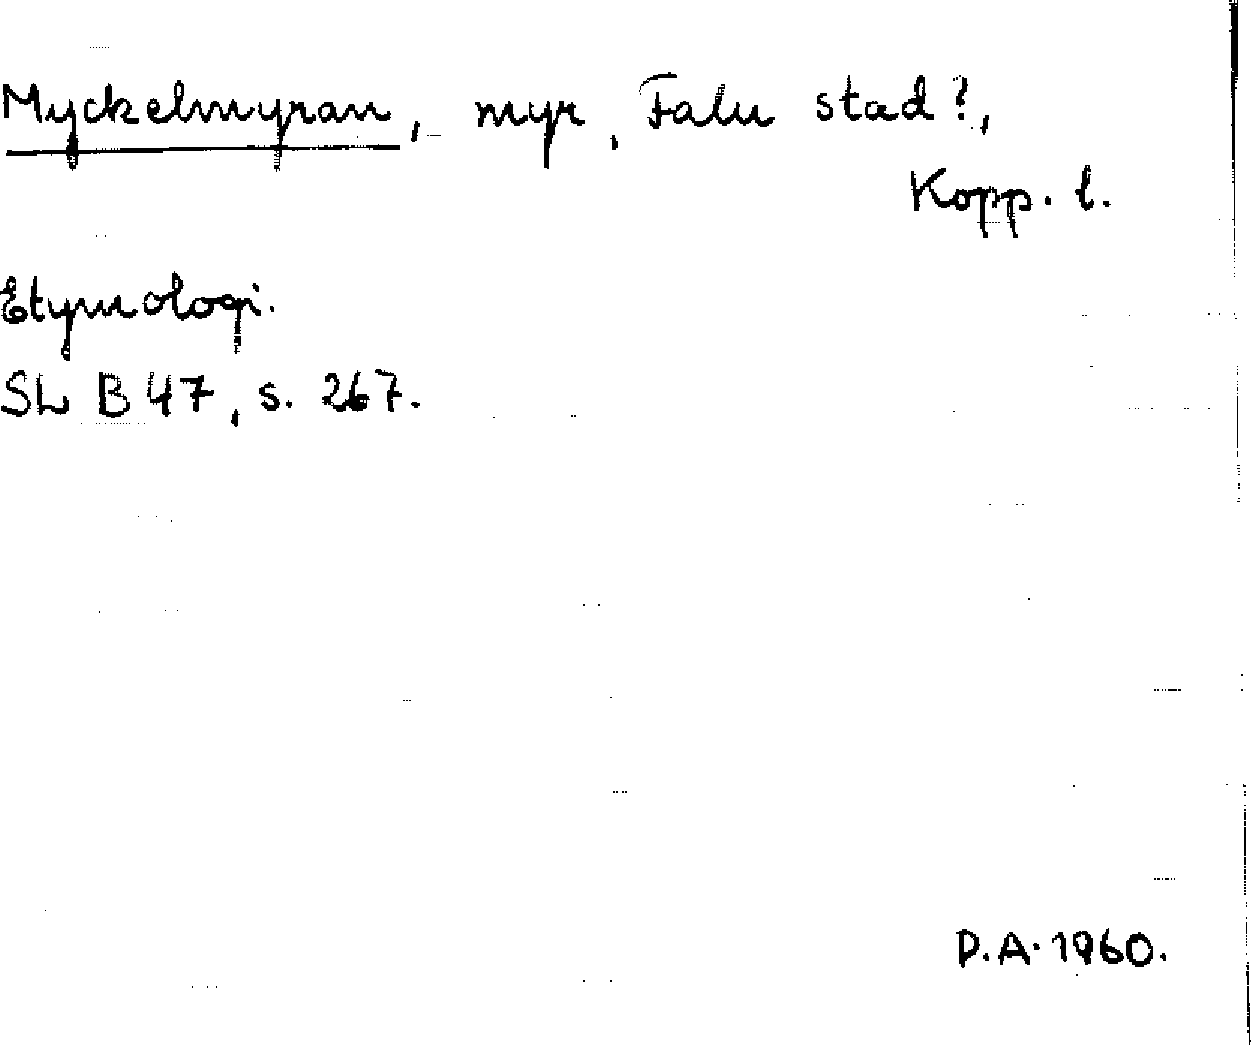 Myckelmyran, myr, Falu stad?,
Kopp. l.
Etymologi.
SL B 47, s. 267.
D.A. 1960.